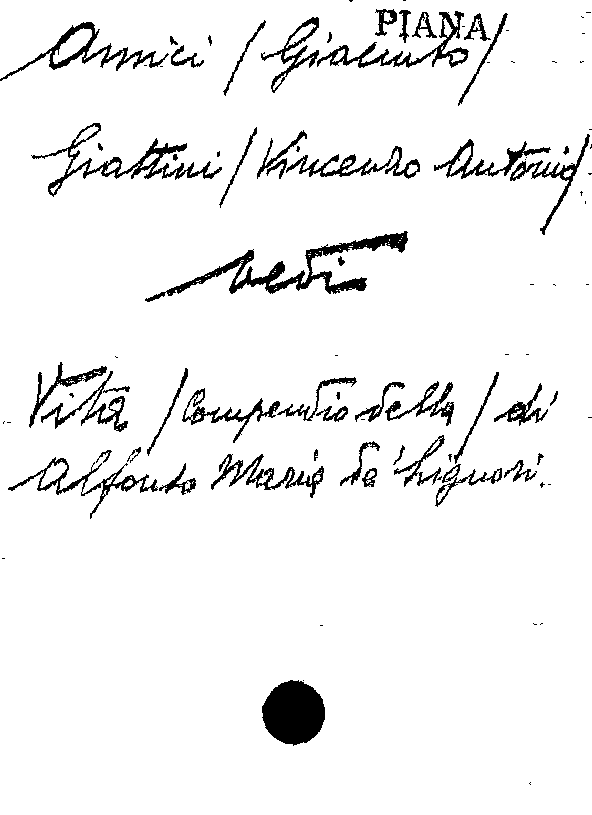 PIANA
Amici / Giacinto /
Giattini / Vincenzo Antonio /
vedi
Vita / Compendio della / di
Alfonso Maria de' Liguori.